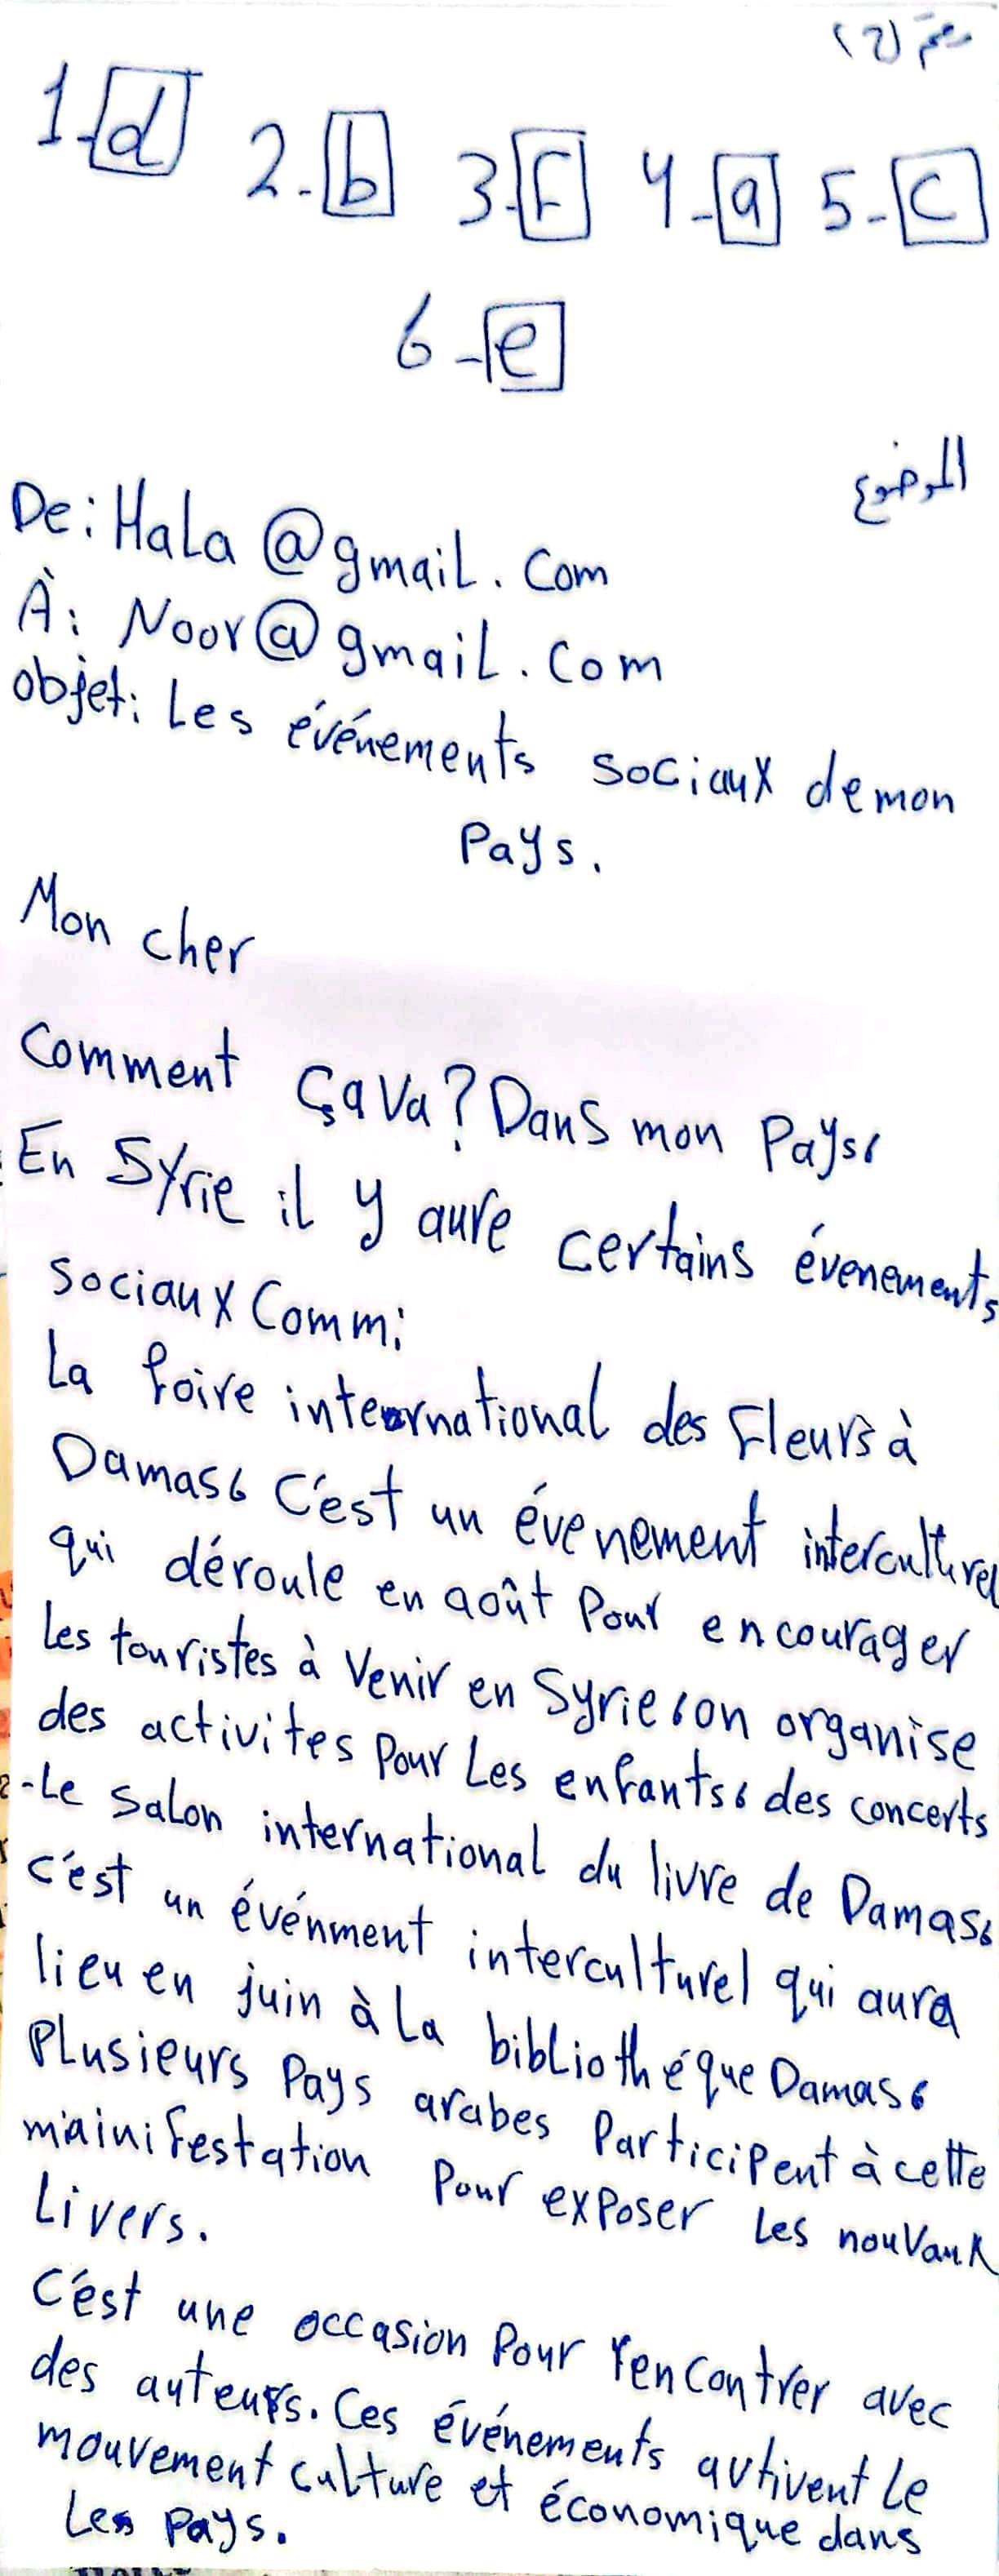 (2)
1-d 2-b 3-F 4-a 5-c
6-e
الموضوع
De: Hala@gmail.com
À: Noor@gmail.com
objet: Les événements sociaux de mon
Pays.
Mon cher
Comment ça va? Dans mon Pays,
En Syrie il y aure certains évenements
sociaux Comm:
La foire international des Fleurs à
Damas, C'est un évenement interculturel
qui déroule en août Pour encourager
Les touristes à Venir en Syrie, on organise
des activites Pour Les enfants, des concerts
-Le salon international du livre de Damas,
c'est un événment interculturel qui aura
lieu en juin à La bibliothéque Damas,
Plusieurs Pays arabes Participent à cette
mainifestation Pour exposer Les nouvaux
Livers.
C'est une occasion Pour rencontrer avec
des auteurs. Ces événements autivent Le
mouvement culture et économique dans
Les Pays.